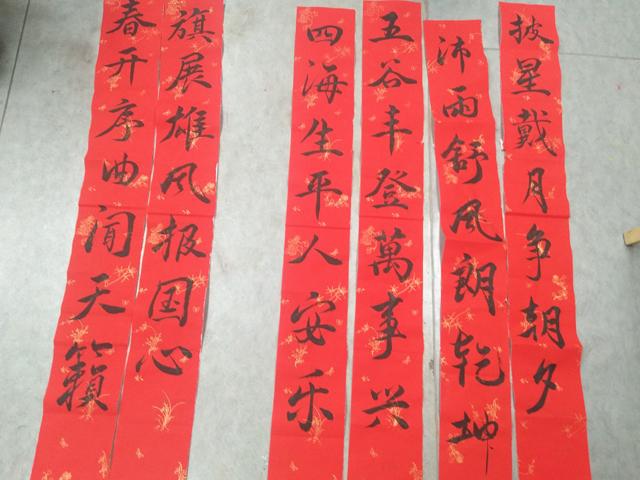 披星戴月争朝夕
沛雨舒风朗乾坤
五谷丰登萬事兴
四海生平人安乐
旗展雄风报国心
春开序曲闻天籁